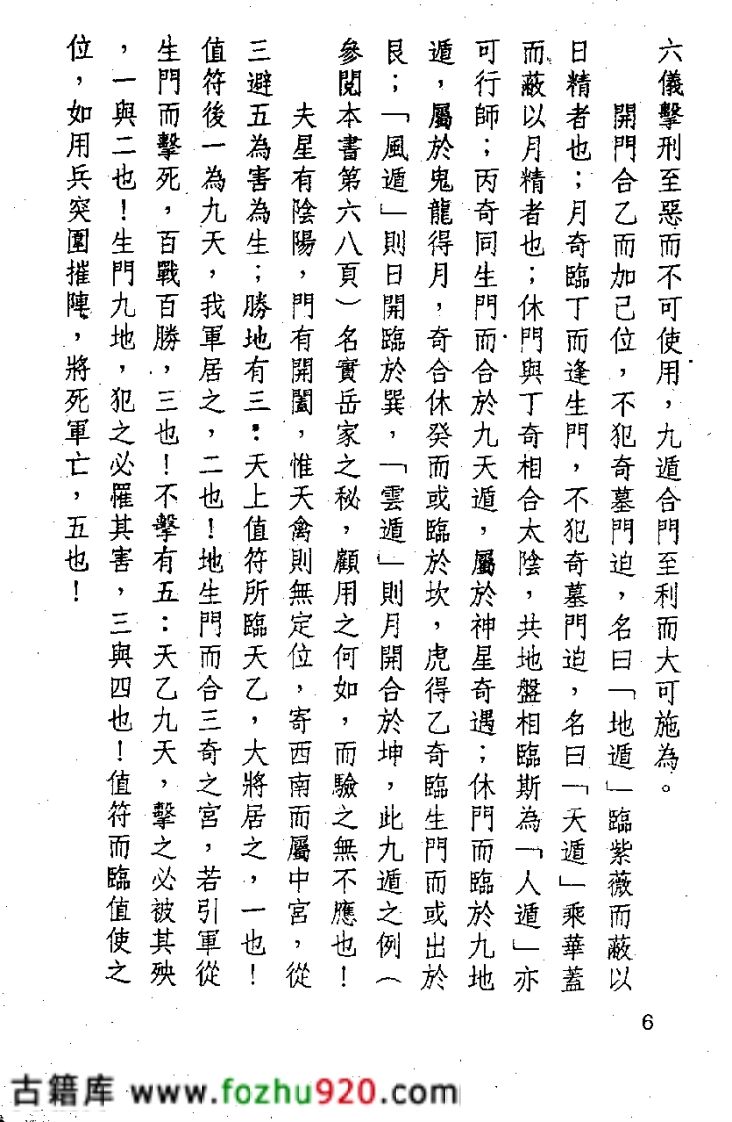 六儀擊刑至惡而不可使用，九遁合門至利而大可施為。
開門合乙而加己位，不犯奇墓門迫，名曰「地遁」臨紫薇而蔽以
日精者也；月奇臨丁而逢生門，不犯奇墓門迫，名曰「天遁」乘華蓋
而蔽以月精者也；休門與丁奇相合太陰，共地盤相臨斯為「人遁」亦
可行師；丙奇同生門而合於九天遁，屬於神星奇遇；休門而臨於九地
遁，屬於鬼龍得月，奇合休癸而或臨於坎，虎得乙奇臨生門而或出於
艮；「風遁」則日開臨於巽，「雲遁」則月開合於坤，此九遁之例（
參閱本書第六八頁）名實岳家之秘，顧用之何如，而驗之無不應也！
夫星有陰陽，門有開闔，惟天禽則無定位，寄西南而屬中宮，從
三避五為害為生；勝地有三：天上值符所臨天乙，大將居之，一也！
值符後一為九天，我軍居之，二也！地生門而合三奇之宮，若引軍從
生門而擊死，百戰百勝，三也！不擊有五：天乙九天，擊之必被其殃
，一與二也！生門九地，犯之必罹其害，三與四也！值符而臨值使之
位，如用兵突圍摧陣，將死軍亡，五也！
6
古籍库 www.fozhu920.com